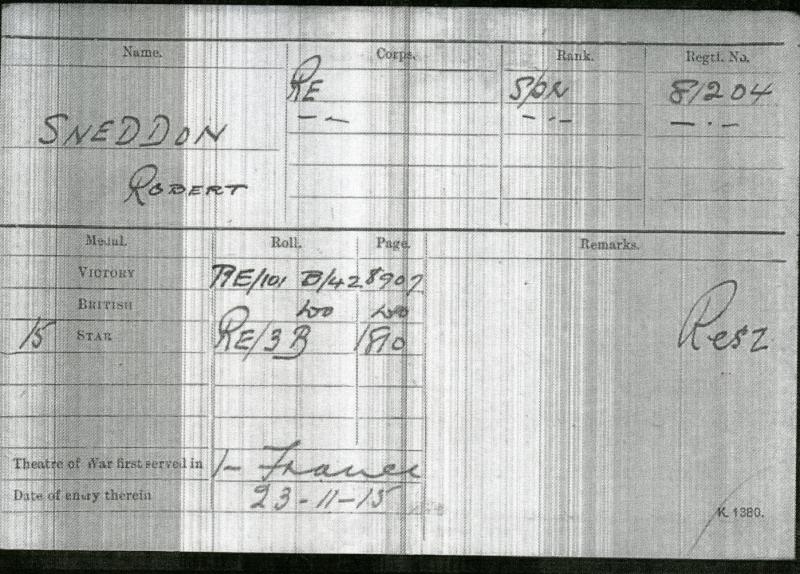 Name. Corps. Rank. Regtl. No.
RE Spr 81204
SNEDDON — — — · — — · —
ROBERT
Medal. Roll. Page. Remarks.
VICTORY RE/101 B/42 8907
BRITISH do do
15 STAR RE/3 B 1810 Resz
Theatre of War first served in 1- France
Date of entry therein 23-11-15
K. 1380.